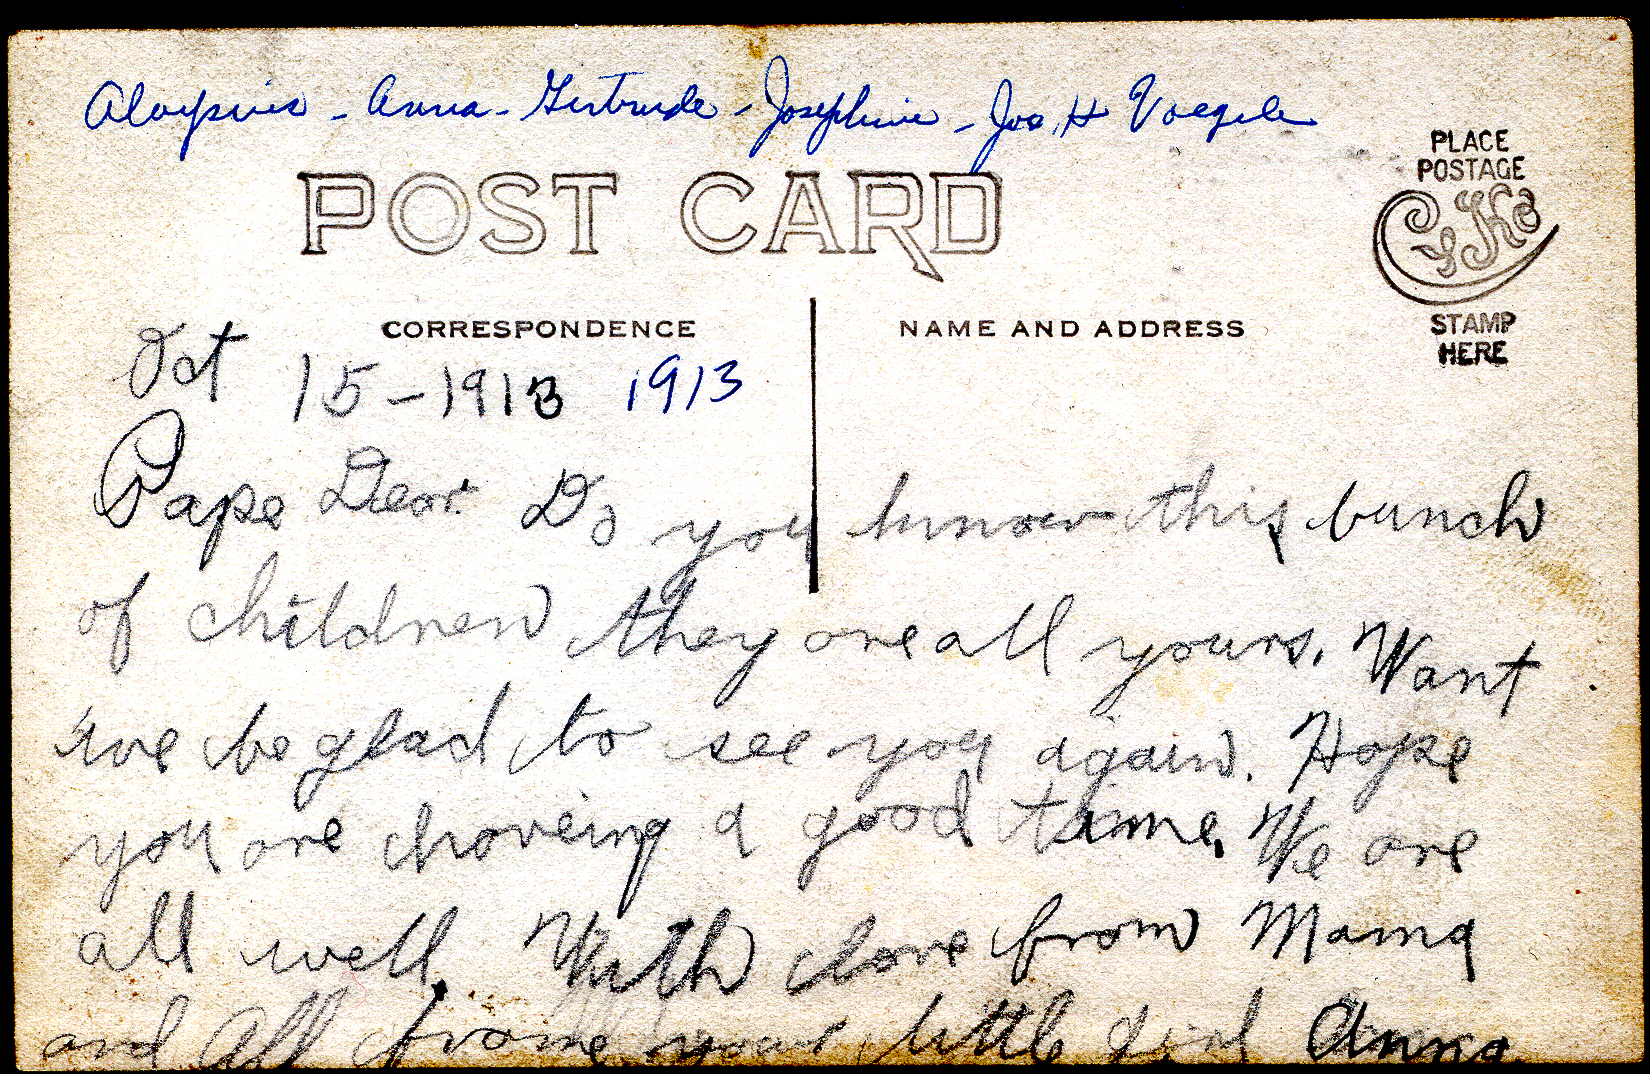 Aloysius - Anna - Gertrude - Josephine - Joe H Voegele
PLACE
POSTAGE
POST CARD
STAMP
HERE
CORRESPONDENCE
NAME AND ADDRESS
Oct 15-1913 1913
Papa Dear. Do you know this bunch
of children they are all yours. Want
we be glad to see you again. Hope
you are haveing a good time. We are
all well. With love from Mama
and all from your little girl Anna